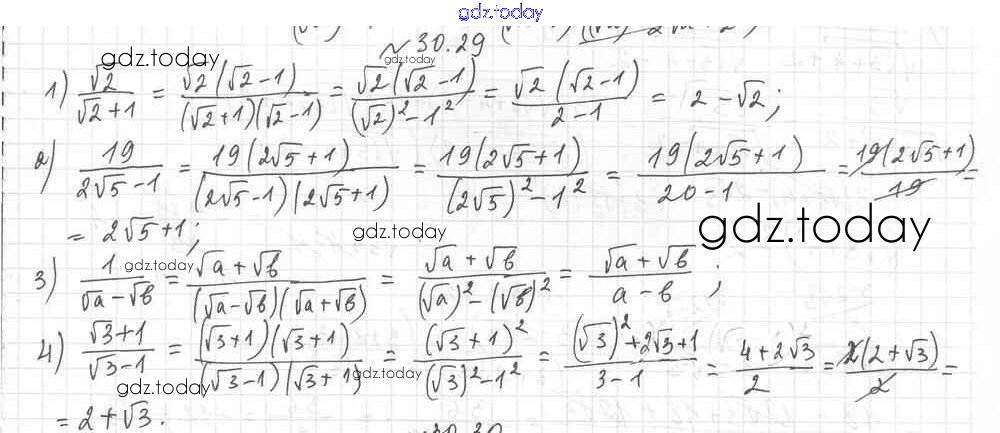 gdz.today
№ 30.29
gdz.today gdz.today
1) √2/(√2+1) = √2(√2-1)/((√2+1)(√2-1)) = √2(√2-1)/((√2)²-1²) = √2(√2-1)/(2-1) = 2-√2;
2) 19/(2√5-1) = 19(2√5+1)/((2√5-1)(2√5+1)) = 19(2√5+1)/((2√5)²-1²) = 19(2√5+1)/(20-1) = 19(2√5+1)/19 =
= 2√5+1;
gdz.today gdz.today
gdz.today
3) 1/(√a-√b) = (√a+√b)/((√a-√b)(√a+√b)) = (√a+√b)/((√a)²-(√b)²) = (√a+√b)/(a-b);
4) (√3+1)/(√3-1) = (√3+1)(√3+1)/((√3-1)(√3+1)) = (√3+1)²/((√3)²-1²) = ((√3)²+2√3+1)/(3-1) = (4+2√3)/2 = 2(2+√3)/2 =
gdz.today gdz.today
= 2+√3.